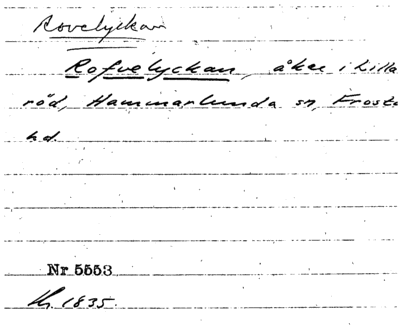 Rovelyckan
Rofvelyckan, åker i Lilla
röd, Hammarlunda sn, Frosta
hd.
Nr 5553
1835.